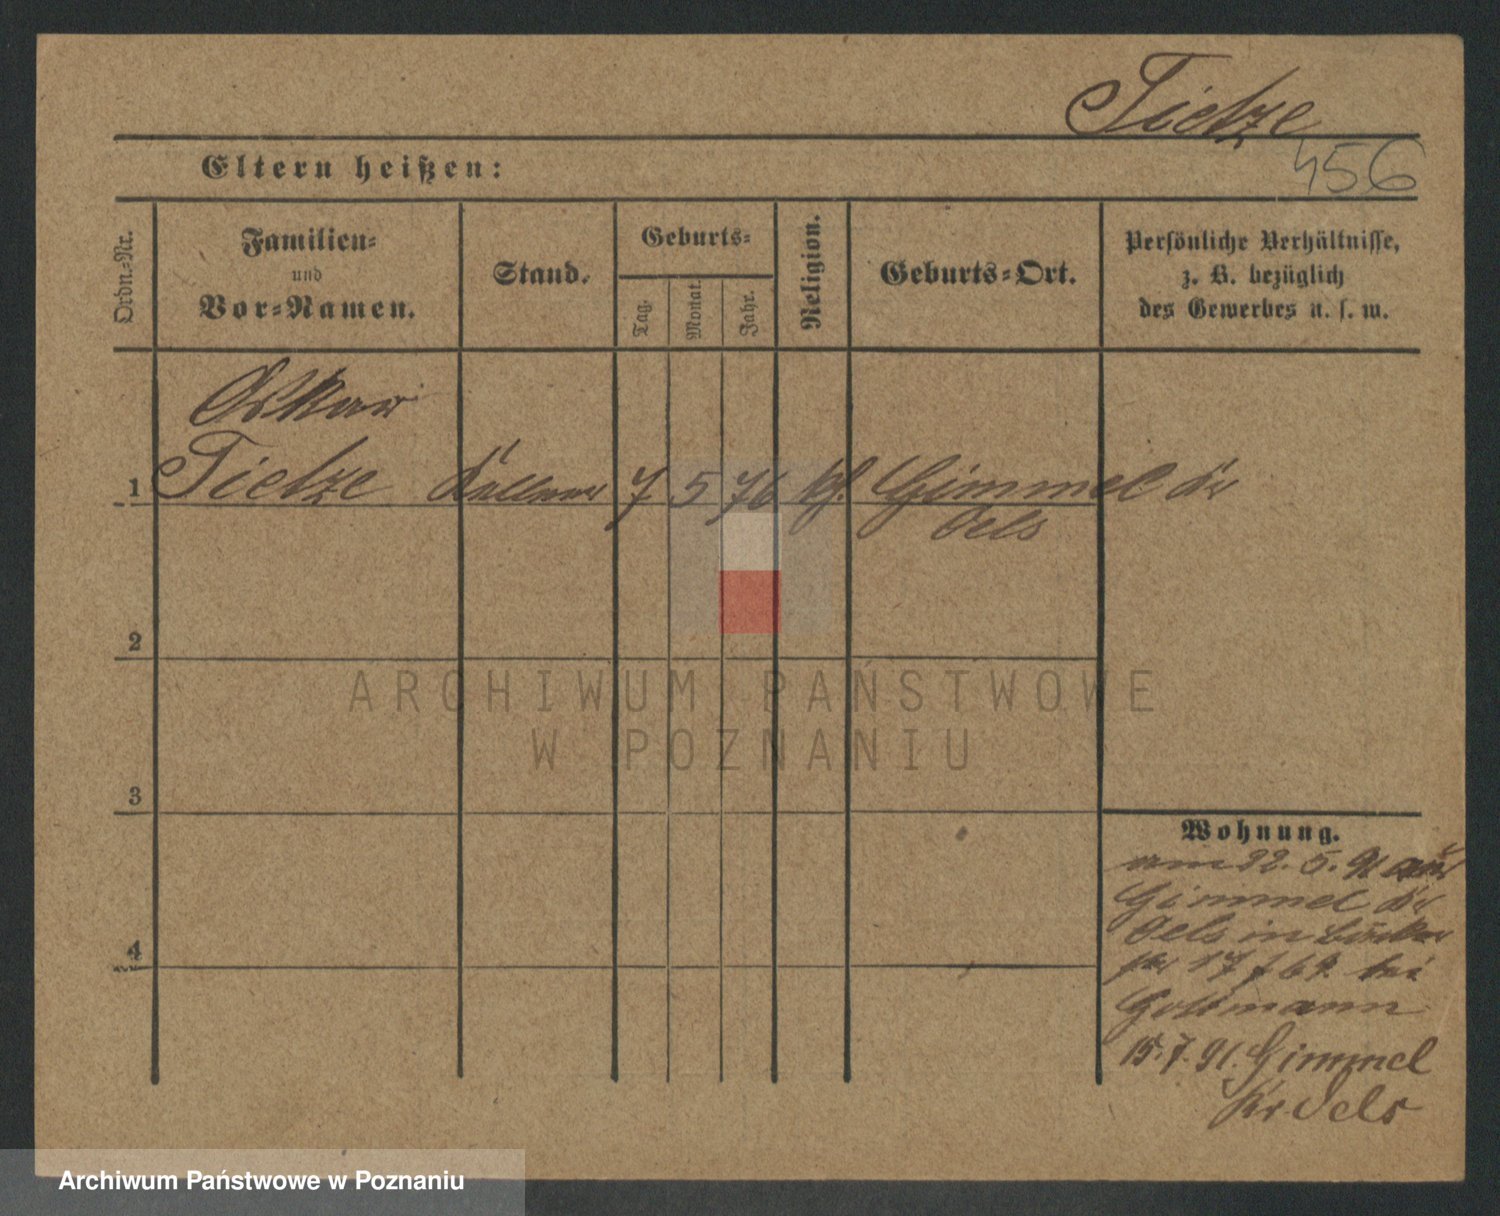 Tietze
456
Eltern heißen:
Ordn.-Nr.
Familien-
und
Vor-Namen.
Stand.
Geburts-
Tag.
Monat.
Jahr.
Religion.
Geburts-Ort.
Persönliche Verhältnisse,
z. B. bezüglich
des Gewerbes u. s. w.
Oskar
1 Tietze Kellner 7 5 76 kf. Gimmel Kr
Oels
2
3
4
ARCHIWUM PAŃSTWOWE
W POZNANIU
Wohnung.
am 22. 5. 91 aus
Gimmel Kr
Oels in
17 bei
15.7.91. Gimmel
Kr Oels
Archiwum Państwowe w Poznaniu